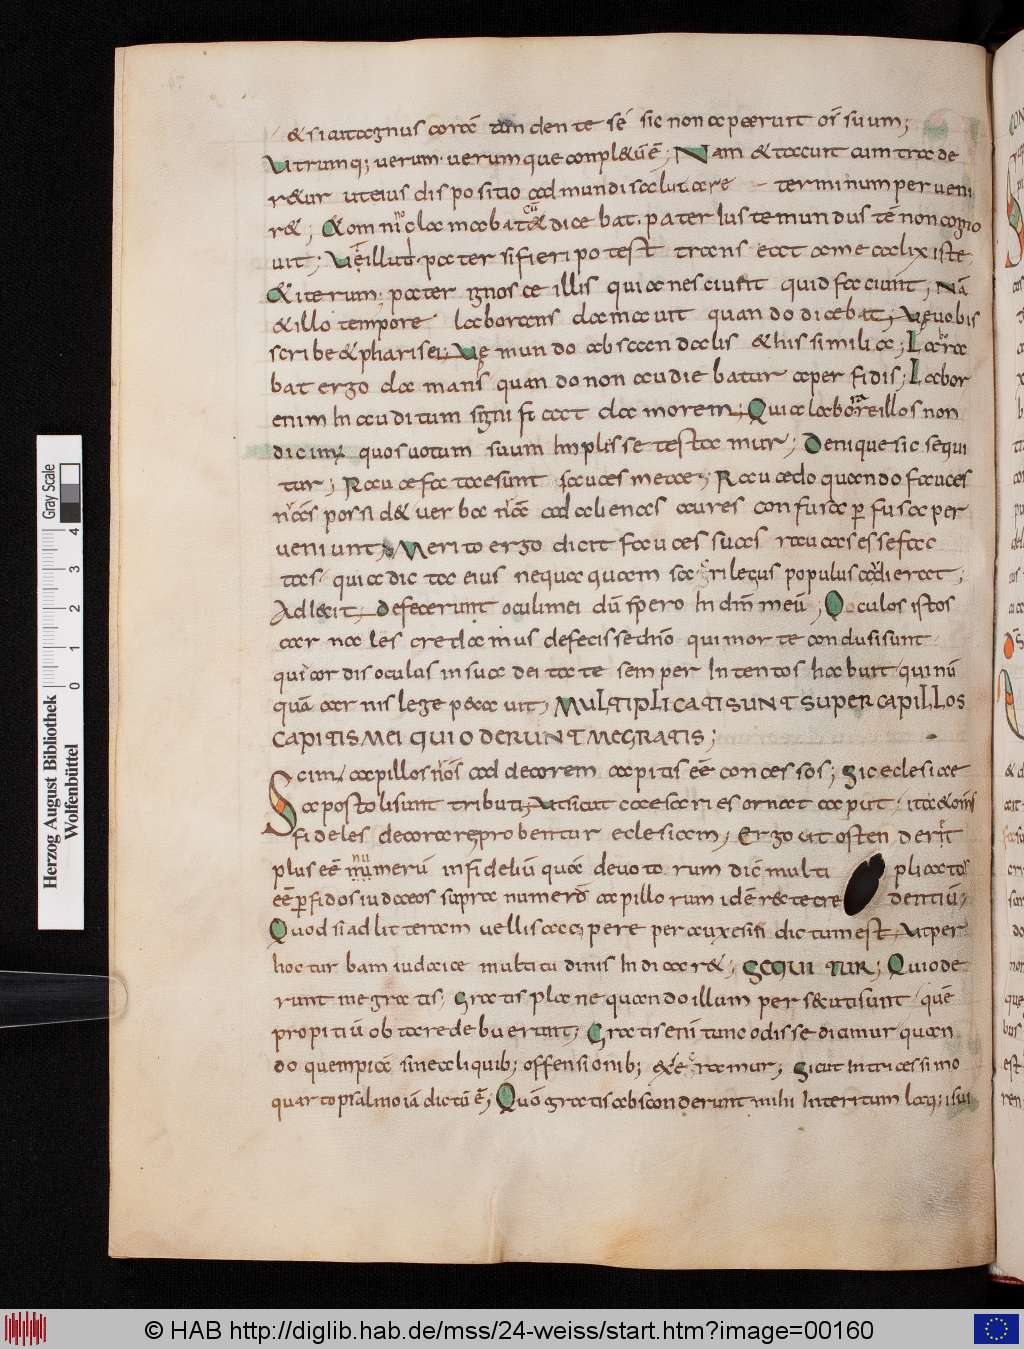 & si aut agnus cora tondente sé sic non aperuit os suum;
Utrumq; uerum· uerumque conpl&ū ē; Nam & tacuit cum trade
r&ur ut eius dispositio ad mundi salutare terminum perueni
r&; & omnino clamabat cū & dicebat· pater iuste mundus tē non cogno
uit; Uel illud· pater si fieri potest transeat a me calix iste
& iterum; pater ignosce illis quia nesciunt quid faciunt; Nā
& illo tempore laborans clamauit quando dicebat; Uę uobis
scribe & pharisei; Uę mundo ab scandalis & his similia; Labora
bat ergo clamans quando non audiebatur a perfidis; Labor
enim In auditum significat clamorem; Quia laborare illos non
dicimꝰ quos uotum suum Implesse testamur; Denique sic sequi
tur; Raucæ factæ sunt fauces meæ; Raucædo quando fauces
nr̄as possid& uerba nr̄a ad alienas aures confusa ꝑ fusa per
ueniunt; Merito ergo dicit fauces suas raucas esse fac
tas· quia dicta eius nequaquam sacrilegus populus audierat;
Adiecit; Defecerunt oculi mei dū spero In dm̄ meū; Oculos istos
carnales credamus defecisse chr̄o qui morte conclusi sunt
qui cordis oculus in sua deitate semper Intentos habuit qui nū
quā carnis lege peccauit; MULTIPLICATI SUNT SUPER CAPILLOS
CAPITIS MEI QUI ODERUNT ME GRATIS;
Scimꝰ capillos nr̄os ad decorem capitis eē concessos; Sic eclesiae
apostoli sunt tributi; Ut sicut caesaries ornat caput ita & om̄s
fideles decorare probentur eclesiam; Ergo ut ostenderit
plus eē numerū infideliū quā deuotorum dic̄ multiplicatos
eē ꝑfidos iudaeos supra numerū capillorum idē recte credentiū;
Quod si ad litteram uellis accipere per auxesin dictum est; Ut per
hoc turbam iudaicae multitudinis Indicar&; SEQUITUR; Qui ode
runt me gratis; Gratis plane quando illum persecuti sunt quē
propitiū obtare debuerunt; Gratis enī tunc odisse dicimur quan
do quempiā sine aliquib; offensionib; execramur; Sicut In tricessimo
quarto psalmo iā dictū ē; Quō gratis absconderunt mihi Interitum laq; i sui
Herzog August Bibliothek
Wolfenbüttel
Gray Scale
0 1 2 3 4
© HAB http://diglib.hab.de/mss/24-weiss/start.htm?image=00160